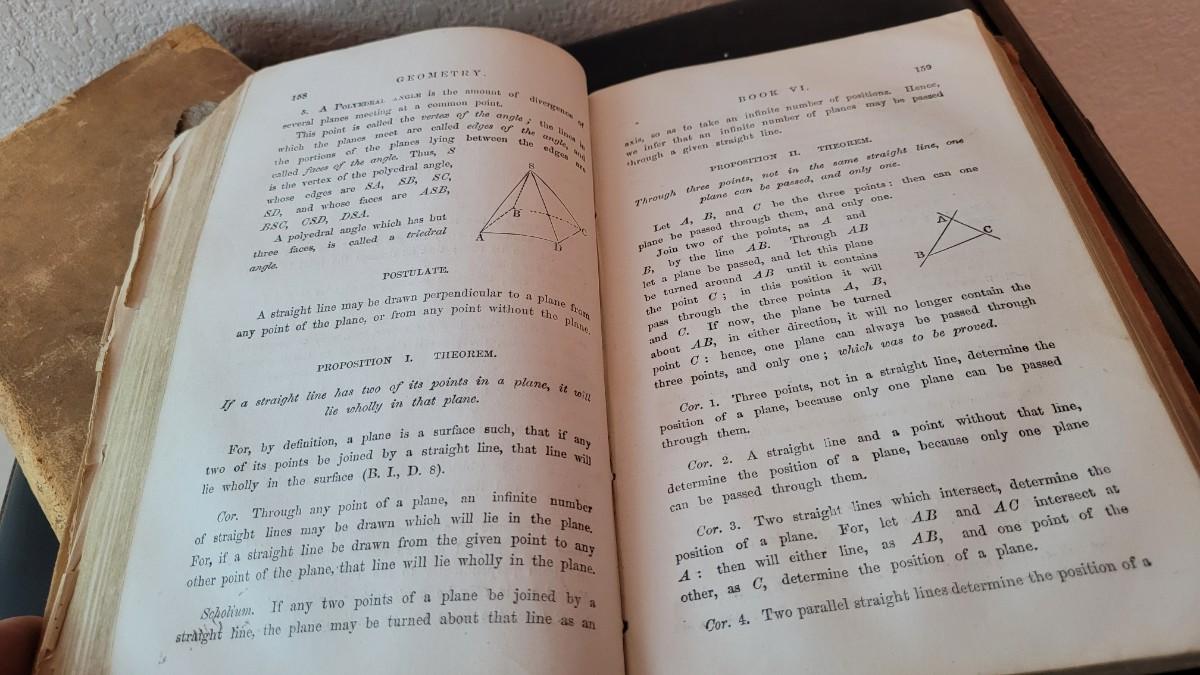 158
GEOMETRY.
8. A POLYEDRAL ANGLE is the amount of divergence of
several planes meeting at a common point.
This point is called the vertex of the angle; the lines in
which the planes meet are called edges of the angle, and
the portions of the planes lying between the edges are
called faces of the angle. Thus, S
is the vertex of the polyedral angle,
whose edges are SA, SB, SC,
SD, and whose faces are ASB,
BSC, CSD, DSA.
A polyedral angle which has but
three faces, is called a triedral
angle.
S
B
A
D
C
POSTULATE.
A straight line may be drawn perpendicular to a plane from
any point of the plane, or from any point without the plane.
PROPOSITION I. THEOREM.
If a straight line has two of its points in a plane, it will
lie wholly in that plane.
For, by definition, a plane is a surface such, that if any
two of its points be joined by a straight line, that line will
lie wholly in the surface (B. I., D. 8).
Cor. Through any point of a plane, an infinite number
of straight lines may be drawn which will lie in the plane.
For, if a straight line be drawn from the given point to any
other point of the plane, that line will lie wholly in the plane.
Scholium. If any two points of a plane be joined by a
straight line, the plane may be turned about that line as an
BOOK VI.
159
axis, so as to take an infinite number of positions. Hence,
we infer that an infinite number of planes may be passed
through a given straight line.
PROPOSITION II. THEOREM.
Through three points, not in the same straight line, one
plane can be passed, and only one.
Let A, B, and C be the three points: then can one
plane be passed through them, and only one.
Join two of the points, as A and
B, by the line AB. Through AB
let a plane be passed, and let this plane
be turned around AB until it contains
the point C; in this position it will
pass through the three points A, B,
and C. If now, the plane be turned
about AB, in either direction, it will no longer contain the
point C: hence, one plane can always be passed through
three points, and only one; which was to be proved.
A
C
B
Cor. 1. Three points, not in a straight line, determine the
position of a plane, because only one plane can be passed
through them.
Cor. 2. A straight line and a point without that line,
determine the position of a plane, because only one plane
can be passed through them.
Cor. 3. Two straight lines which intersect, determine the
position of a plane. For, let AB and AC intersect at
A: then will either line, as AB, and one point of the
other, as C, determine the position of a plane.
Cor. 4. Two parallel straight lines determine the position of a